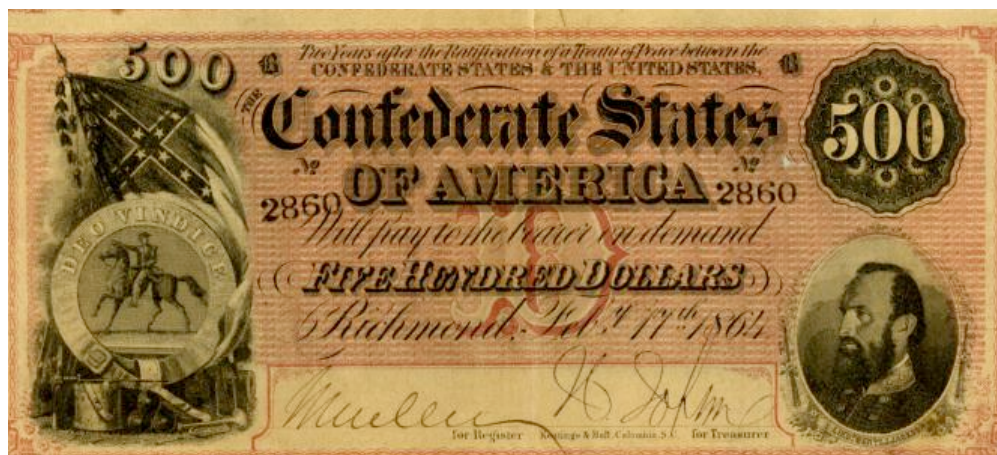 500
B Two Years after the Ratification of a Treaty of Peace between the B
CONFEDERATE STATES & THE UNITED STATES,
THE
Confederate States
500
Nº Nº
2860 OF AMERICA 2860
DEO VINDICE
Will pay to the bearer on demand
FIVE HUNDRED DOLLARS
Richmond, Feb.y 17th 1864
for Register Keatinge & Ball, Columbia, S.C. for Treasurer